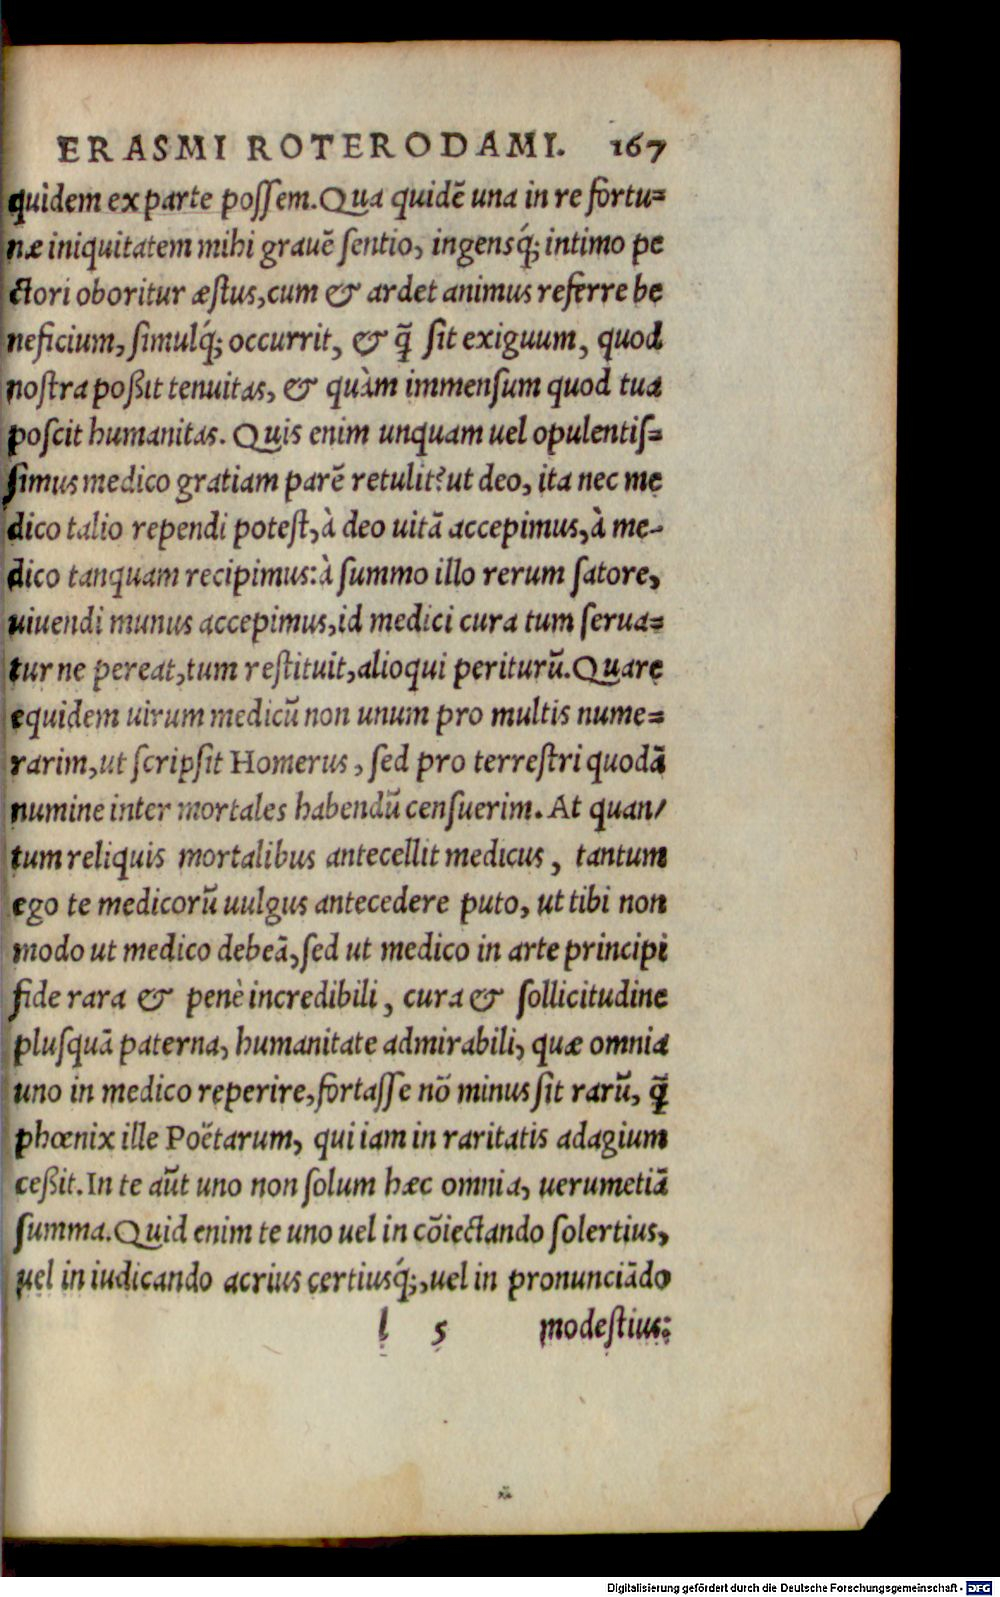 ERASMI ROTERODAMI. 167
quidem ex parte poſſem. Qua quidē una in re fortu=
næ iniquitatem mihi grauē ſentio, ingensq́; intimo pe
ctori oboritur æſtus, cum & ardet animus referre be
neficium, ſimulq́; occurrit, & q̄ ſit exiguum, quod
noſtra poßit tenuitas, & quàm immenſum quod tua
poſcit humanitas. Quis enim unquam uel opulentiſ=
ſimus medico gratiam parē retulit? ut deo, ita nec me
dico talio rependi poteſt, à deo uitā accepimus, à me-
dico tanquam recipimus: à ſummo illo rerum ſatore,
uiuendi munus accepimus, id medici cura tum ſerua=
tur ne pereat, tum reſtituit, alioqui periturū. Quare
equidem uirum medicū non unum pro multis nume=
rarim, ut ſcripſit Homerus, ſed pro terreſtri quodā
numine inter mortales habendū cenſuerim. At quan/
tum reliquis mortalibus antecellit medicus, tantum
ego te medicorū uulgus antecedere puto, ut tibi non
modo ut medico debeā, ſed ut medico in arte principi
fide rara & penè incredibili, cura & ſollicitudine
pluſquā paterna, humanitate admirabili, quæ omnia
uno in medico reperire, fortaſſe nō minus ſit rarū, q̄
phœnix ille Poëtarum, qui iam in raritatis adagium
ceßit. In te aūt uno non ſolum hæc omnia, uerumetiā
ſumma. Quid enim te uno uel in cōiectando ſolertius,
uel in iudicando acrius certiusq́;, uel in pronunciādo
l 5 modeſtius:
Digitalisierung gefördert durch die Deutsche Forschungsgemeinschaft - DFG